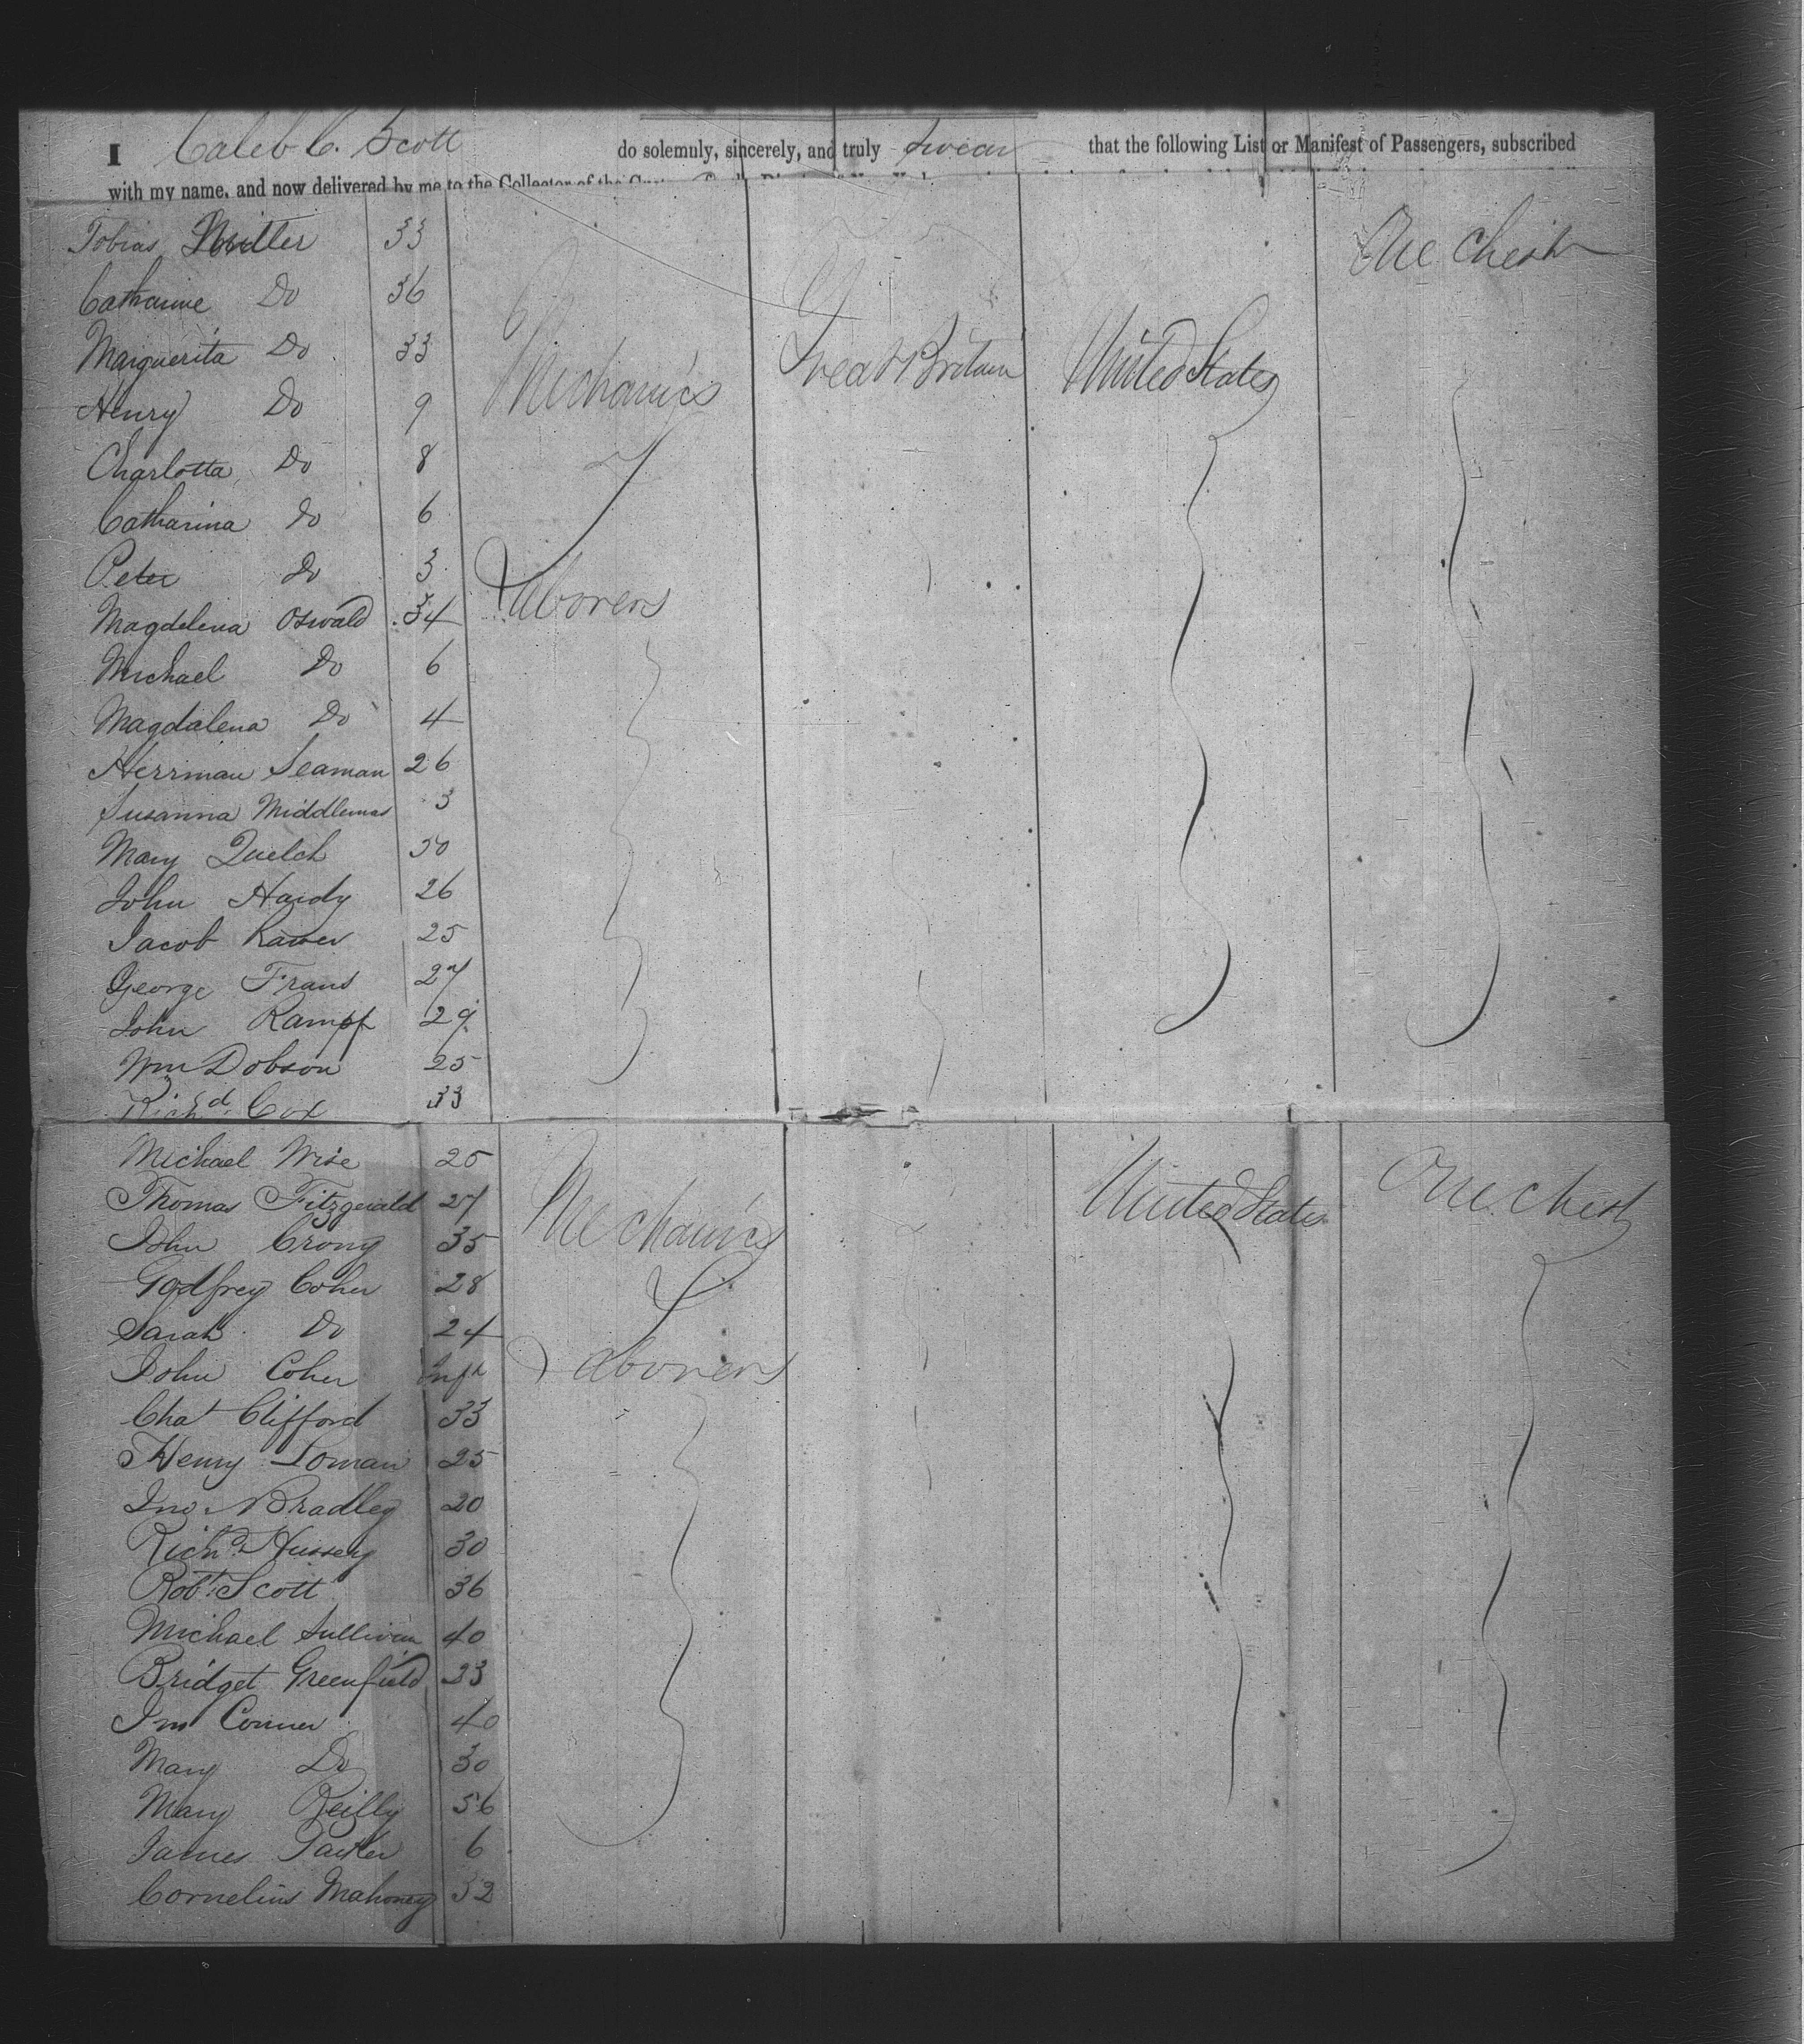 I Caleb C. Scott do solemnly, sincerely, and truly swear that the following List or Manifest of Passengers, subscribed
with my name, and now delivered by me to the Collector of the
Tobias 33 One Chest
Catharine Do 36
Marguerita Do 33 Mechanics Great Britain United States
Henry Do 9
Charlotta Do 8
Catharina Do 6
Peter Do 3
Magdelena Oswald 34 Laborers
Michael Do 6
Magdalena Do 4
Herrman Seaman 26
Susanna Middlemas 3
Mary Quelch 50
John Hardy 26
Jacob 25
George Frans 27
John Rampf 29
Wm Dobson 25
Richd. Cox 33
Michael Wise 25
Thomas Fitzgerald 27 Mechanics United States One Chest
John Crony 35
Godfrey Coher 28
Sarah Do 24
John Coher Inft Laborers
Chas Clifford 33
Henry Loman 25
Jno. Bradley 20
Richd. Hussey 30
Robt. Scott 36
Michael Sullivan 40
Bridget Greenfield 23
Conner 40
Mary Do 30
Mary Reilly 56
James 6
Cornelius Mahoney 32